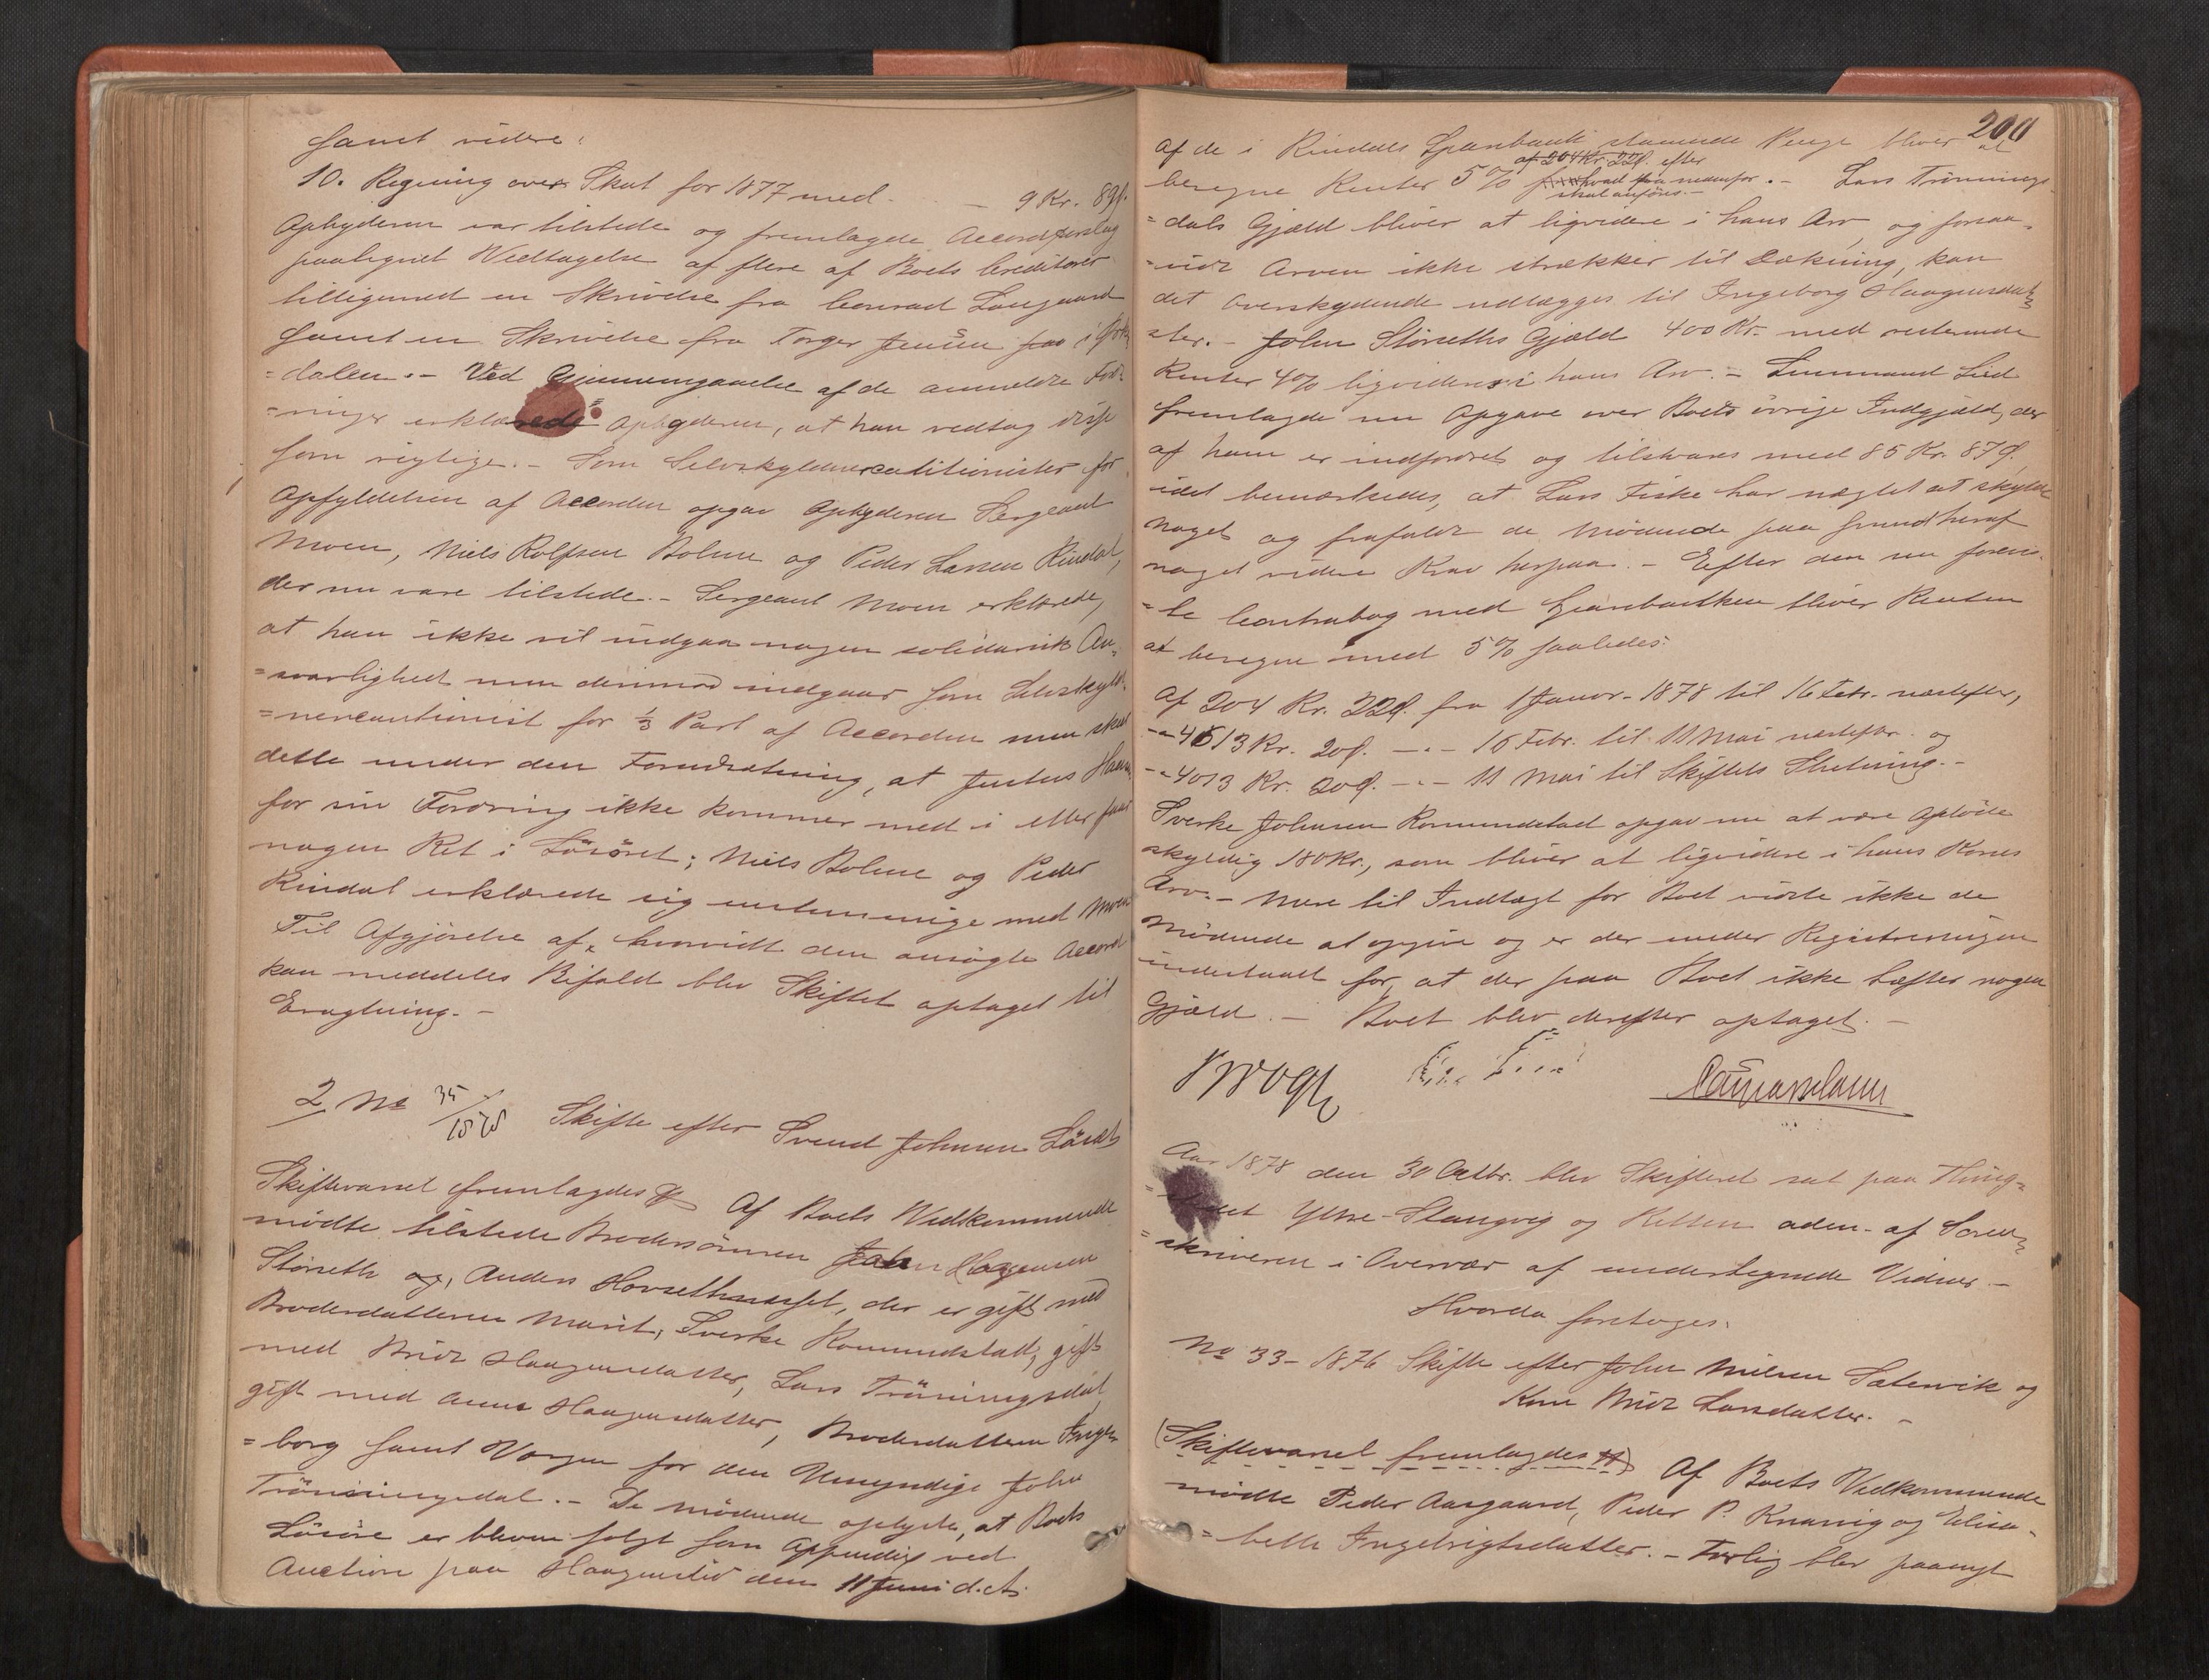 samt videre:
10. Regning over Skat for 1877 med - 9 Kr. 89 ø.
Opbyderen var tilstede og fremlagde Accordforslag
paategnet Vedtagelse af flere af Boets Creditorer
tilligemed en Skrivelse fra Conrad Langaard
samt en Skrivelse fra Torger Jensen i Ork
=dalen. - Ved Gjennemgaaelse af de anmeldte Ford-
=ringer erklærede Opbyderen, at han vedtog disse
som rigtige. - Som Selvskyldnercautionister for
Opfyldelsen af Accorden opgav Opbyderen Sergeant
Moen, Niels Rolfsen Bolme og Peder Larsen Rindal,
der nu vare tilstede. - Sergeant Moen erklærede,
at han ikke vil indgaa nogen solidarisk An-
=svarlighed men derimod indgaar som Selvskyld-
=nercautionist for 1/3 Part af Accorden men skeer
dette under den Forudsætning, at Justus
for sin Fordring ikke kommer med i eller faar
nogen Ret i Løsøret; Niels Bolme og Peder
Rindal erklærede sig enstemmige med Moen
Til Afgjørelse af, hvorvidt den ansøgte Accord
kan meddeles Bifald blev Skiftet optaget til
Eragtning. -
2 No 35/1878 Skifte efter Svend Johnsen Løset
Skiftevarsel fremlagdes Af Boets Vedkommende
mødte tilstede Brodersønnen John Haagensen
Størseth og, Anders Hovsethaasset, der er gift med
Broderdatteren Marit, Sverke Romundstad, gift
med Brit Haagensdatter, Lars Trønningsdal,
gift med Anne Haagensdatter, Broderdatteren Inge-
=borg samt Vergen for den Umyndige John
Trønningsdal. - De mødende oplyste, at Boets
Løsøre er bleven solgt som Appendix ved
Auction paa Haagenslid den 11 Juni d. A.
200
Af de i Rindals Sparebank staaende Penge bliver at
af 204 Kr. 22 ø. efter
beregne Renter 5 % hvad nedenfor. - Lars Trønnings-
skal anføres. -
=dals Gjæld bliver at liqvidere i hans Arv, og forsaa-
=vidt Arven ikke strækker til Dækning, kan
det Overskydende udlægges til Ingeborg Haagensdat=
=ter. - John Størseths Gjæld 400 Kr. med resterende
Renter 4 % liqvideres i hans Arv. - Lensmand Lied
fremlagde nu Opgave over Boets øvrige Indgjæld, der
af ham er indfordret og tilsvares med 85 Kr. 87 ø,
idet bemærkedes, at Lars Fiske har nægtet at skylde
noget og frafaldt de Mødende paa Grund heraf
noget videre Krav herpaa. - Efter den nu forevis-
=te Contrabog med Sparebanken bliver Renten
at beregne med 5 % saaledes:
Af 204 Kr. 22 ø. fra 1 Januar 1878 til 16 Febr. næstefter,
-"- 4513 Kr. 20 ø. -"- 16 Febr. til 11 Mai næstefter og
-"- 4013 Kr. 20 ø. -"- 11 Mai til Skiftets Slutning. -
Sverke Johnsen Romundstad opgav nu at være Afdøde
skyldig 180 Kr., som bliver at liqvidere i hans Kones
Arv. - Mere til Indtægt for Boet vidste ikke de
Mødende at opgive og er der under Registreringen
indestaaet for, at der paa Boet ikke hæfter nogen
Gjæld. - Boet blev derefter optaget. -
Vogt
Aar 1878 den 30 Octbr. blev Skifteret sat paa Thing-
=stedet Ytre-Stangvig og Retten adm. af Soren=
=skriveren i Overvær af undertegnede Vidner. -
Hvorda foretoges:
No 33 - 1876 Skifte efter John Nilsen Sætervik og
Kone Brit Larsdatter. -
(Skiftevarsel fremlagdes) Af Boets Vedkommende
mødte Peder Aasgaard, Peder P. Kvanvig og Elisa-
=beth Ingebrigtsdatter. - Forlig blev paany